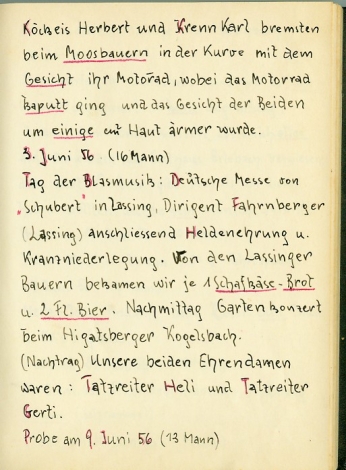 Köckeis Herbert und Krenn Karl bremsten
beim Moosbauern in der Kurve mit dem
Gesicht ihr Motorad, wobei das Motorrad
kaputt ging und das Gesicht der Beiden
um einige cm² Haut ärmer wurde.
3. Juni 56 (16 Mann)
Tag der Blasmusik: Deutsche Messe von
"Schubert" in Lassing, Dirigent Fahrnberger
(Lassing) anschliessend Heldenehrung u.
Kranzniederlegung. Von den Lassinger
Bauern bekamen wir je 1 Schafkäse-Brot
u. 2 Fl. Bier. Nachmittag Gartenkonzert
beim Higatsberger Kogelsbach.
(Nachtrag) Unsere beiden Ehrendamen
waren: Tatzreiter Heli und Tatzreiter
Gerti.
Probe am 9. Juni 56 (13 Mann)